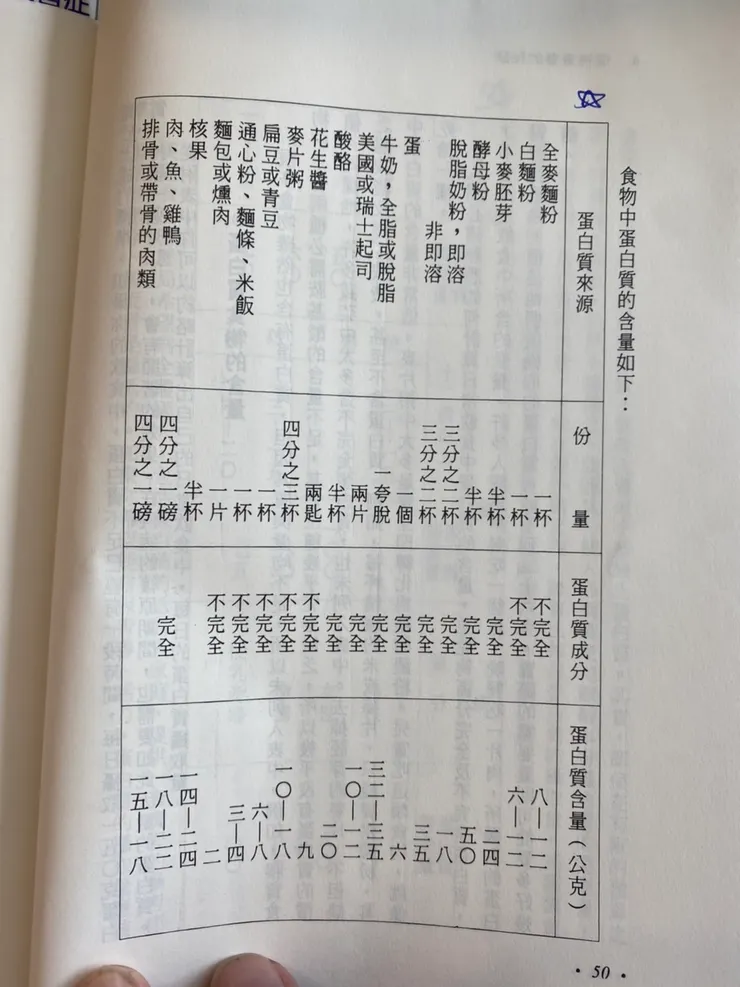 食物中蛋白質的含量如下：
蛋白質來源 份量 蛋白質成分 蛋白質含量（公克）
全麥麵粉 一杯 不完全 八—一二
白麵粉 一杯 不完全 六—一二
小麥胚芽 半杯 完全 二四
酵母粉 半杯 完全 五〇
脫脂奶粉，即溶 三分之二杯 完全 一八
非即溶 三分之二杯 完全 三五
蛋 一個 完全 六
牛奶，全脂或脫脂 一夸脫 完全 三二—三五
美國或瑞士起司 兩片 完全 一〇—一二
酸酪 半杯 完全 二〇
花生醬 兩匙 不完全 九
麥片粥 四分之三杯 不完全 一〇—一八
扁豆或青豆 一杯 不完全 六—八
通心粉、麵條、米飯 一杯 不完全 三—四
麵包或燻肉 一片 不完全 二
核果 半杯 一四—二四
肉、魚、雞鴨 四分之一磅 完全 一八—二二
排骨或帶骨的肉類 四分之一磅 一五—一八
• 50 •